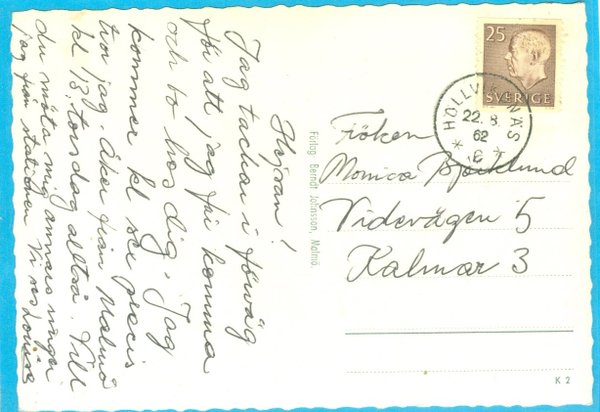 Hejsan!
Jag tackar i förväg
för att jag får komma
och bo hos dig. Jag
kommer kl sex precis
tror jag. Åker från Malmö
kl 13, torsdag alltså. Vill
du möta mig annars ringer
jag från stationen. Vi ses Louise
Förlag Berndt Johnsson, Malmö
25
SVERIGE
HÖLLVIKSNÄS
22. 8.
62
Fröken
Monica Björklund
Videvägen 5
Kalmar 3
K 2